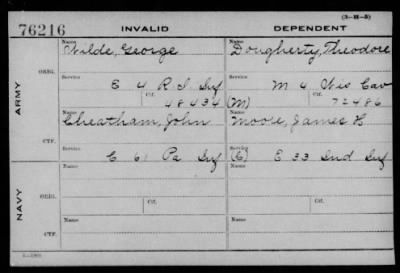 (3-H-5)
76216 INVALID DEPENDENT
Name Name
Wilde, George Dougherty, Theodore
ARMY
ORIG. Service Service
E 4 R.I. Inf M 4 Wis Cav
Ctf. Ctf.
48434 (M) 72486
Name Name
Cheatham, John Moore, James H
CTF. Service Service
C 61 Pa Inf (C) E 33 Ind Inf
NAVY
Name Name
ORIG. Ctf. Ctf.
Name Name
CTF. Service Service